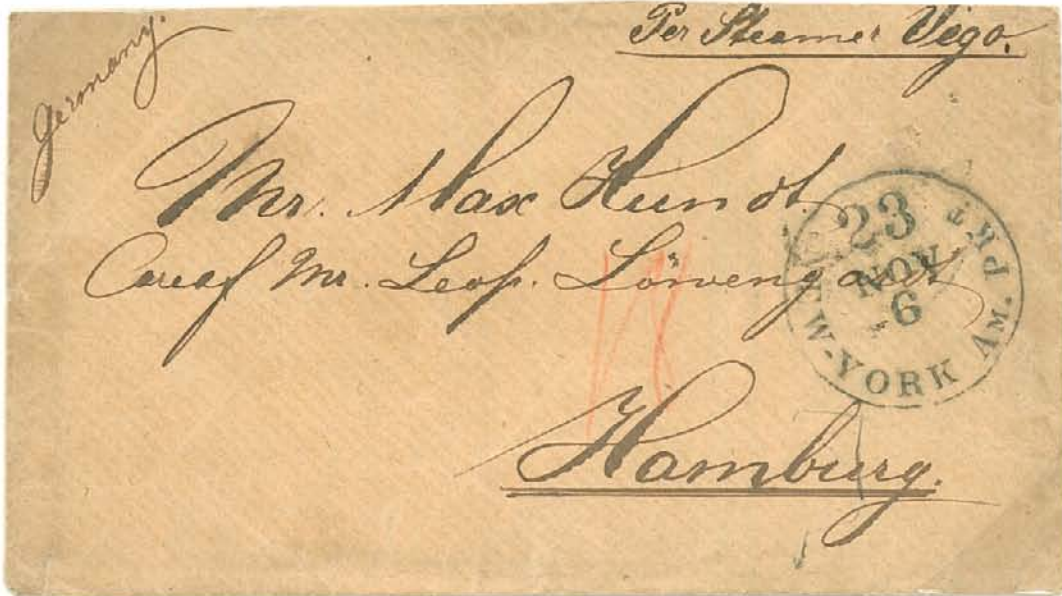 Germany.
Per Steamer Vigo.
Mr. Max Hundt
Careof Mr. Leop. Löwengard
Hamburg.
23
NOV
6
NEW-YORK AM. PKT